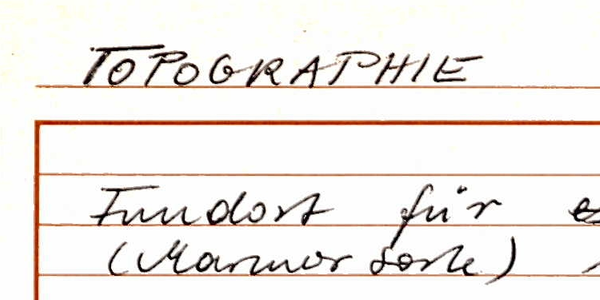 TOPOGRAPHIE
Fundort für
(Marmorsorte)